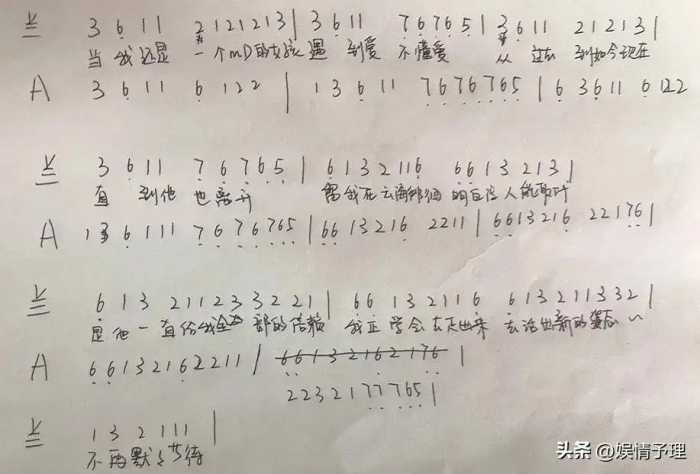 兰 3 6 1 1 2 1 2 1 2 1 3 | 3 6 1 1 7 6 7 6 5 | 3 6 1 1 2 1 2 1 3 |
当 我 还是 一个 的女孩 遇 到爱 不懂爱 从 过去 到如今现在
A 3 6 1 1 6 1 2 2 | 1 3 6 1 1 7 6 7 6 7 6 5 | 6 3 6 1 1 6 1 2 2
兰 3 6 1 1 7 6 7 6 5 | 6 1 3 2 1 1 6 6 6 1 3 2 1 3 |
直 到他 也离开 留我在云海徘徊 明白没人能取代
A 1 3 6 1 1 1 7 6 7 6 7 6 5 | 6 6 1 3 2 1 6 2 2 1 1 | 6 6 1 3 2 1 6 2 2 1 7 6 |
兰 6 1 3 2 1 1 2 3 3 2 2 1 | 6 6 1 3 2 1 1 6 6 1 3 2 1 1 3 3 2 |
是他一直给我 部的信赖 我正学会去走出来 去活出新的
A 6 6 1 3 2 1 6 2 2 1 1 | 6 6 1 3 2 1 6 2 1 7 6 |
2 2 3 2 1 7 7 7 6 5 |
兰 1 3 2 1 1 1 |
不再默 等待
头条 @娱情予理